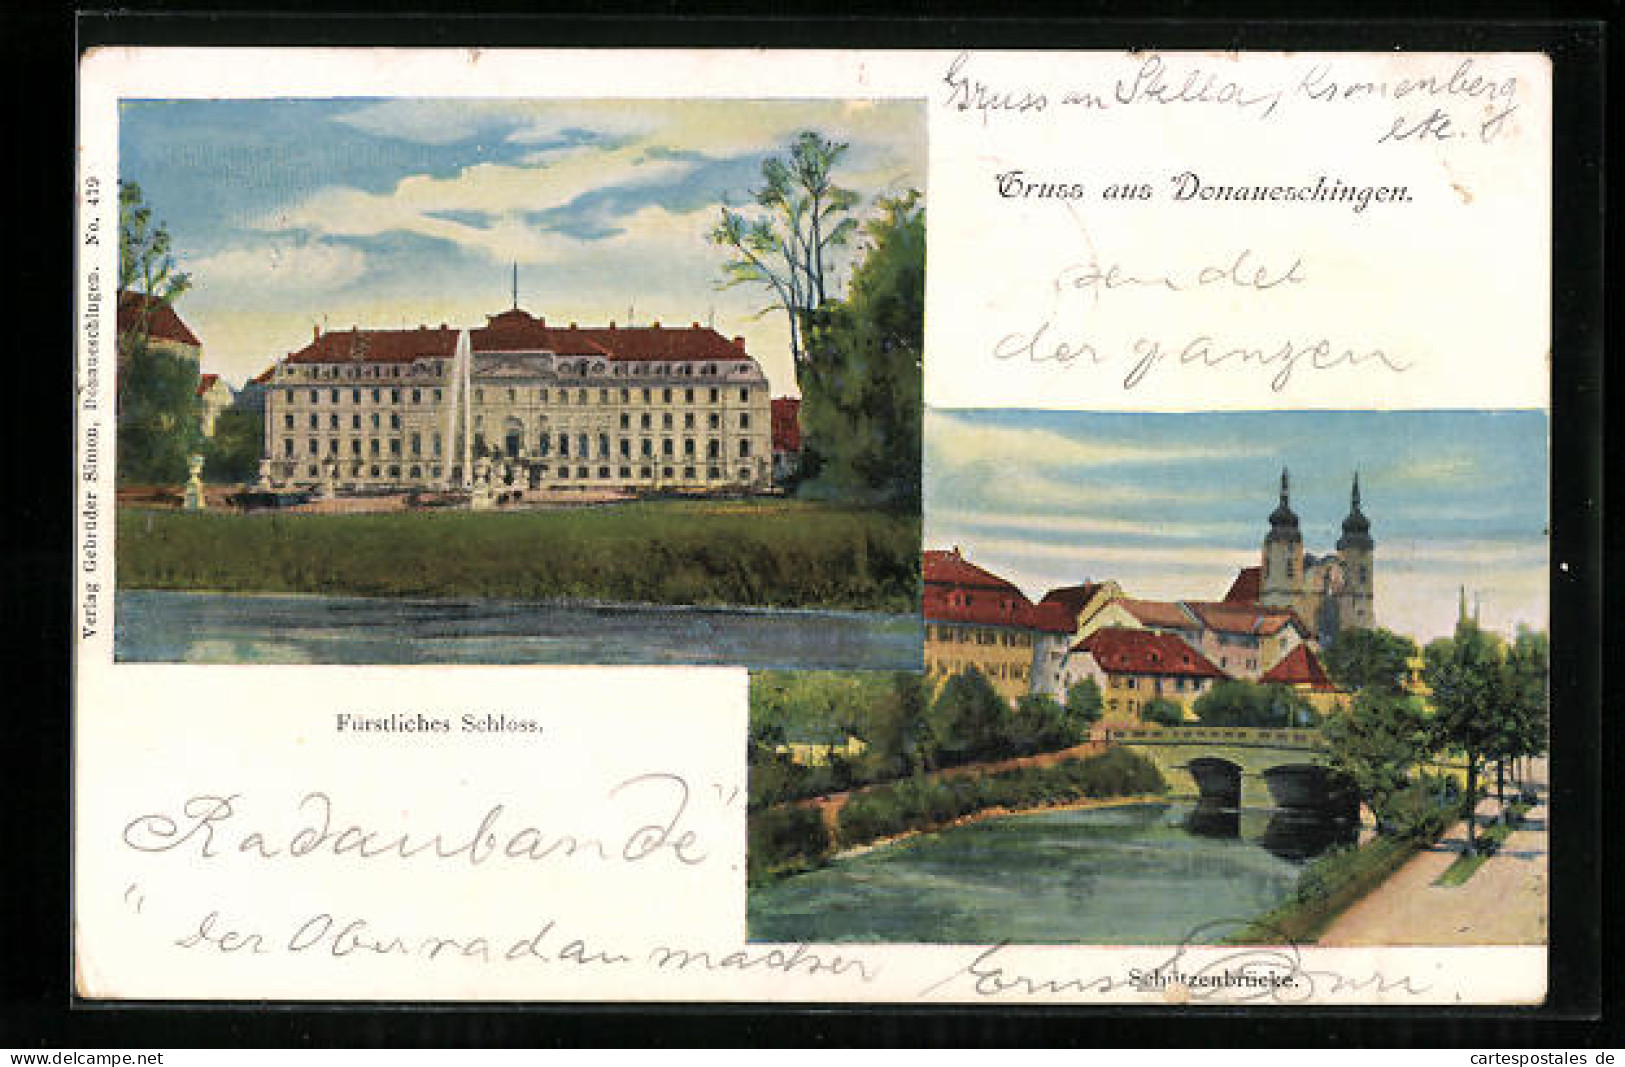 Gruss an Stella, Kronenberg
etc.
Gruss aus Donaueschingen.
sendet
der ganzen
Verlag Gebrüder Simon, Donaueschingen. No. 419
Fürstliches Schloss.
Radaubande".
"der Oberradaumacher
Ernst Buri.
Schützenbrücke.
delcampe.net
cartespostales de